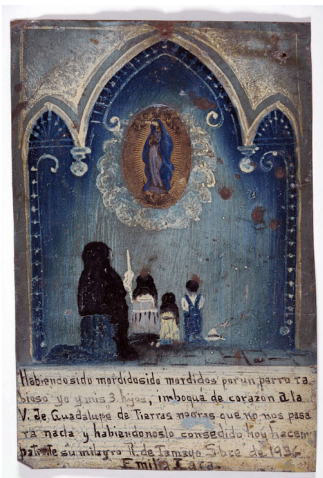 Habiendo sido mordidosido mordidos por un perro ra
bioso yo y mis 3 hijos, imboqué de corazon á la
V. de Guadalupe de Tierras negras que no nos pasa
ra nada y habiendonoslo consedido hoy hacem
patente su milagro R. de Tamayo Sbre de 1936
Emilia Lara.